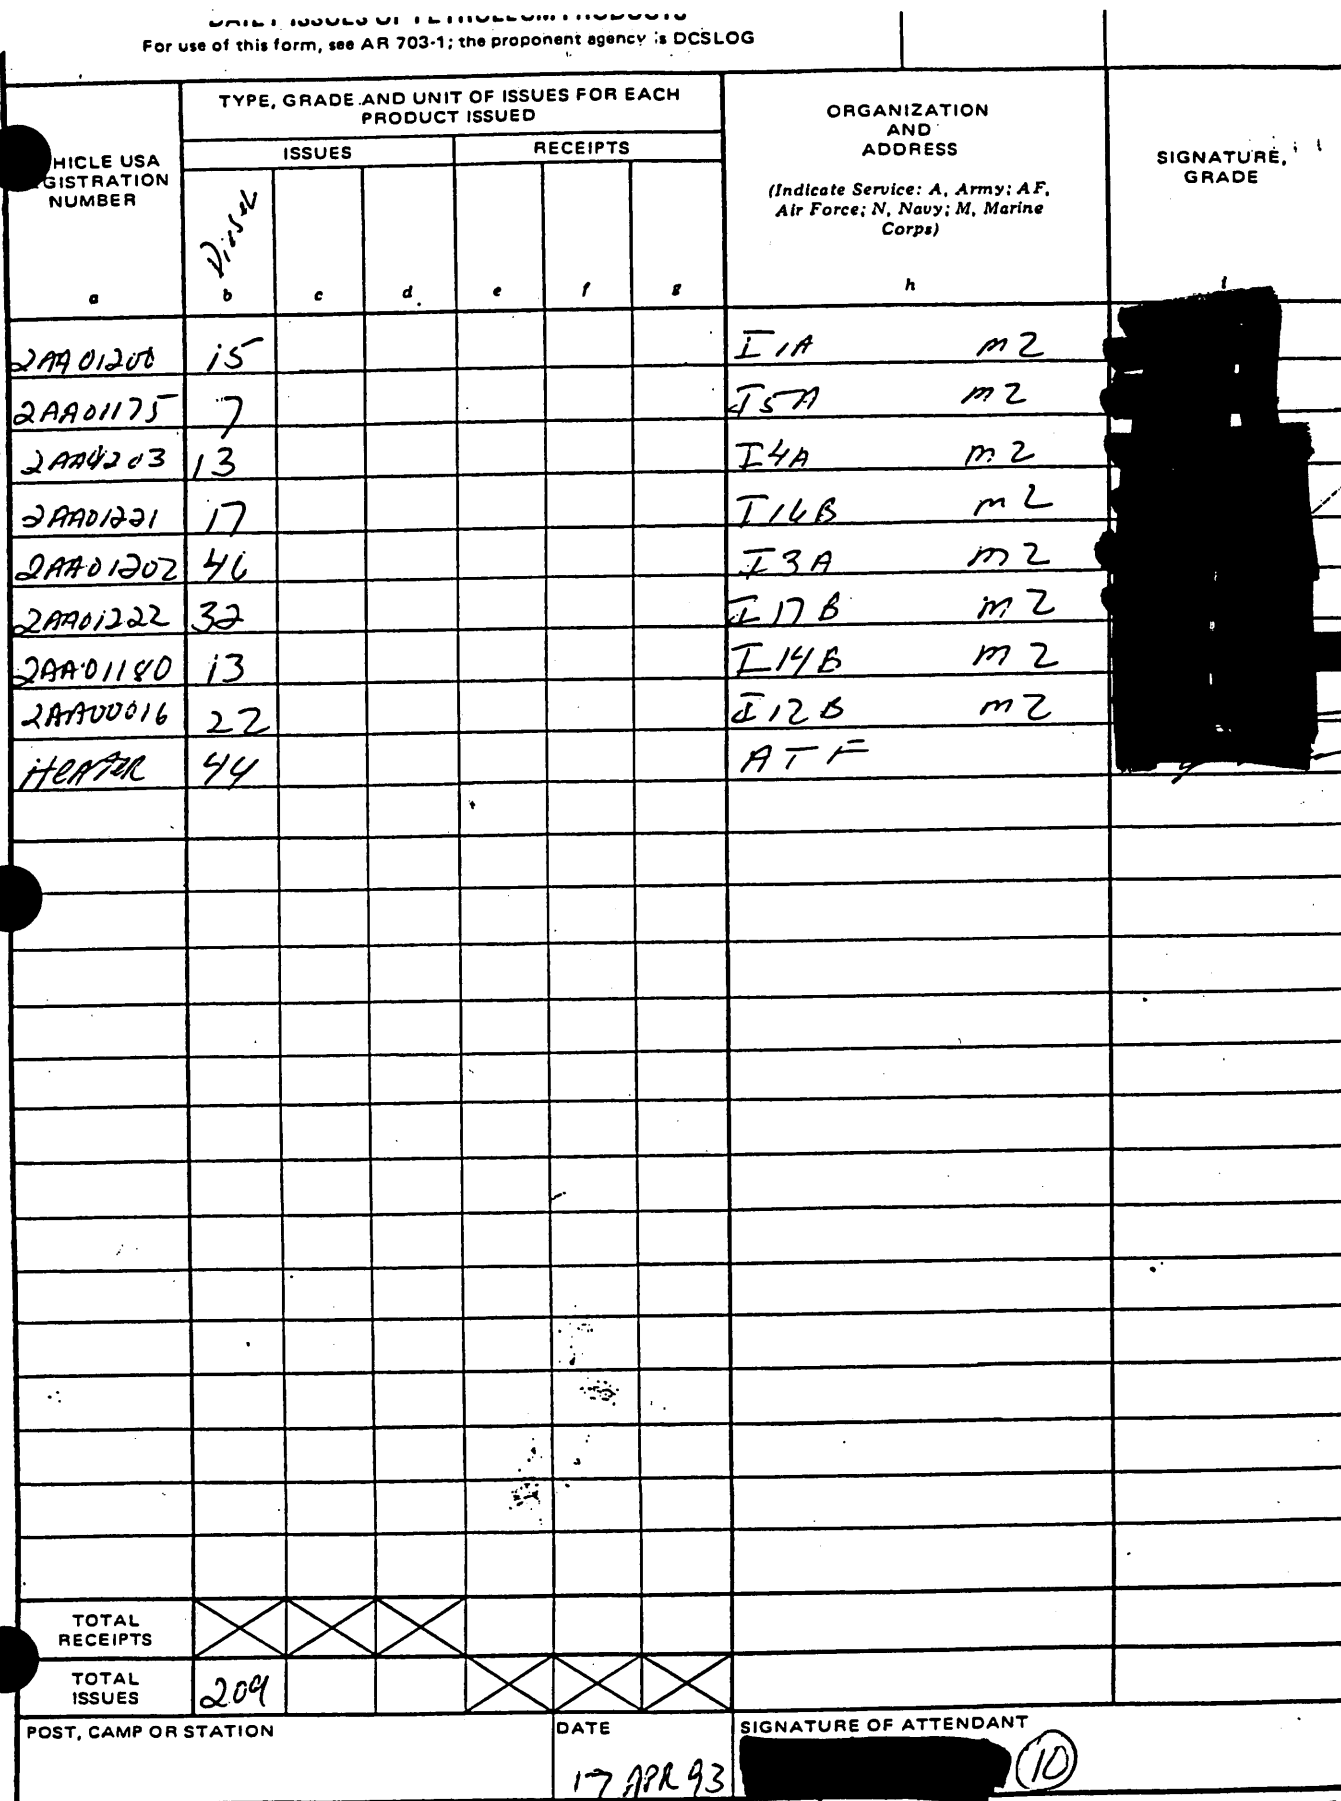 DAILY ISSUES OF PETROLEUM PRODUCTS
For use of this form, see AR 703-1; the proponent agency is DCSLOG
HICLE USA
GISTRATION
NUMBER
a
TYPE, GRADE AND UNIT OF ISSUES FOR EACH
PRODUCT ISSUED
ISSUES RECEIPTS
Diesel
b c d e f g
ORGANIZATION
AND
ADDRESS
(Indicate Service: A, Army; AF,
Air Force; N, Navy; M, Marine
Corps)
h
SIGNATURE,
GRADE
i
2AA01200 15 I1A m2
2AA01175 7 I5A m2
2AA4203 13 I4A m2
2AA01221 17 I16B m2
2AA01202 46 I3A m2
2AA01222 32 I17B m2
2AA01180 13 I14B m2
2AA00016 22 I12B m2
HEATER 44 ATF
TOTAL
RECEIPTS
TOTAL
ISSUES 209
POST, CAMP OR STATION DATE SIGNATURE OF ATTENDANT
17 APR 93 10